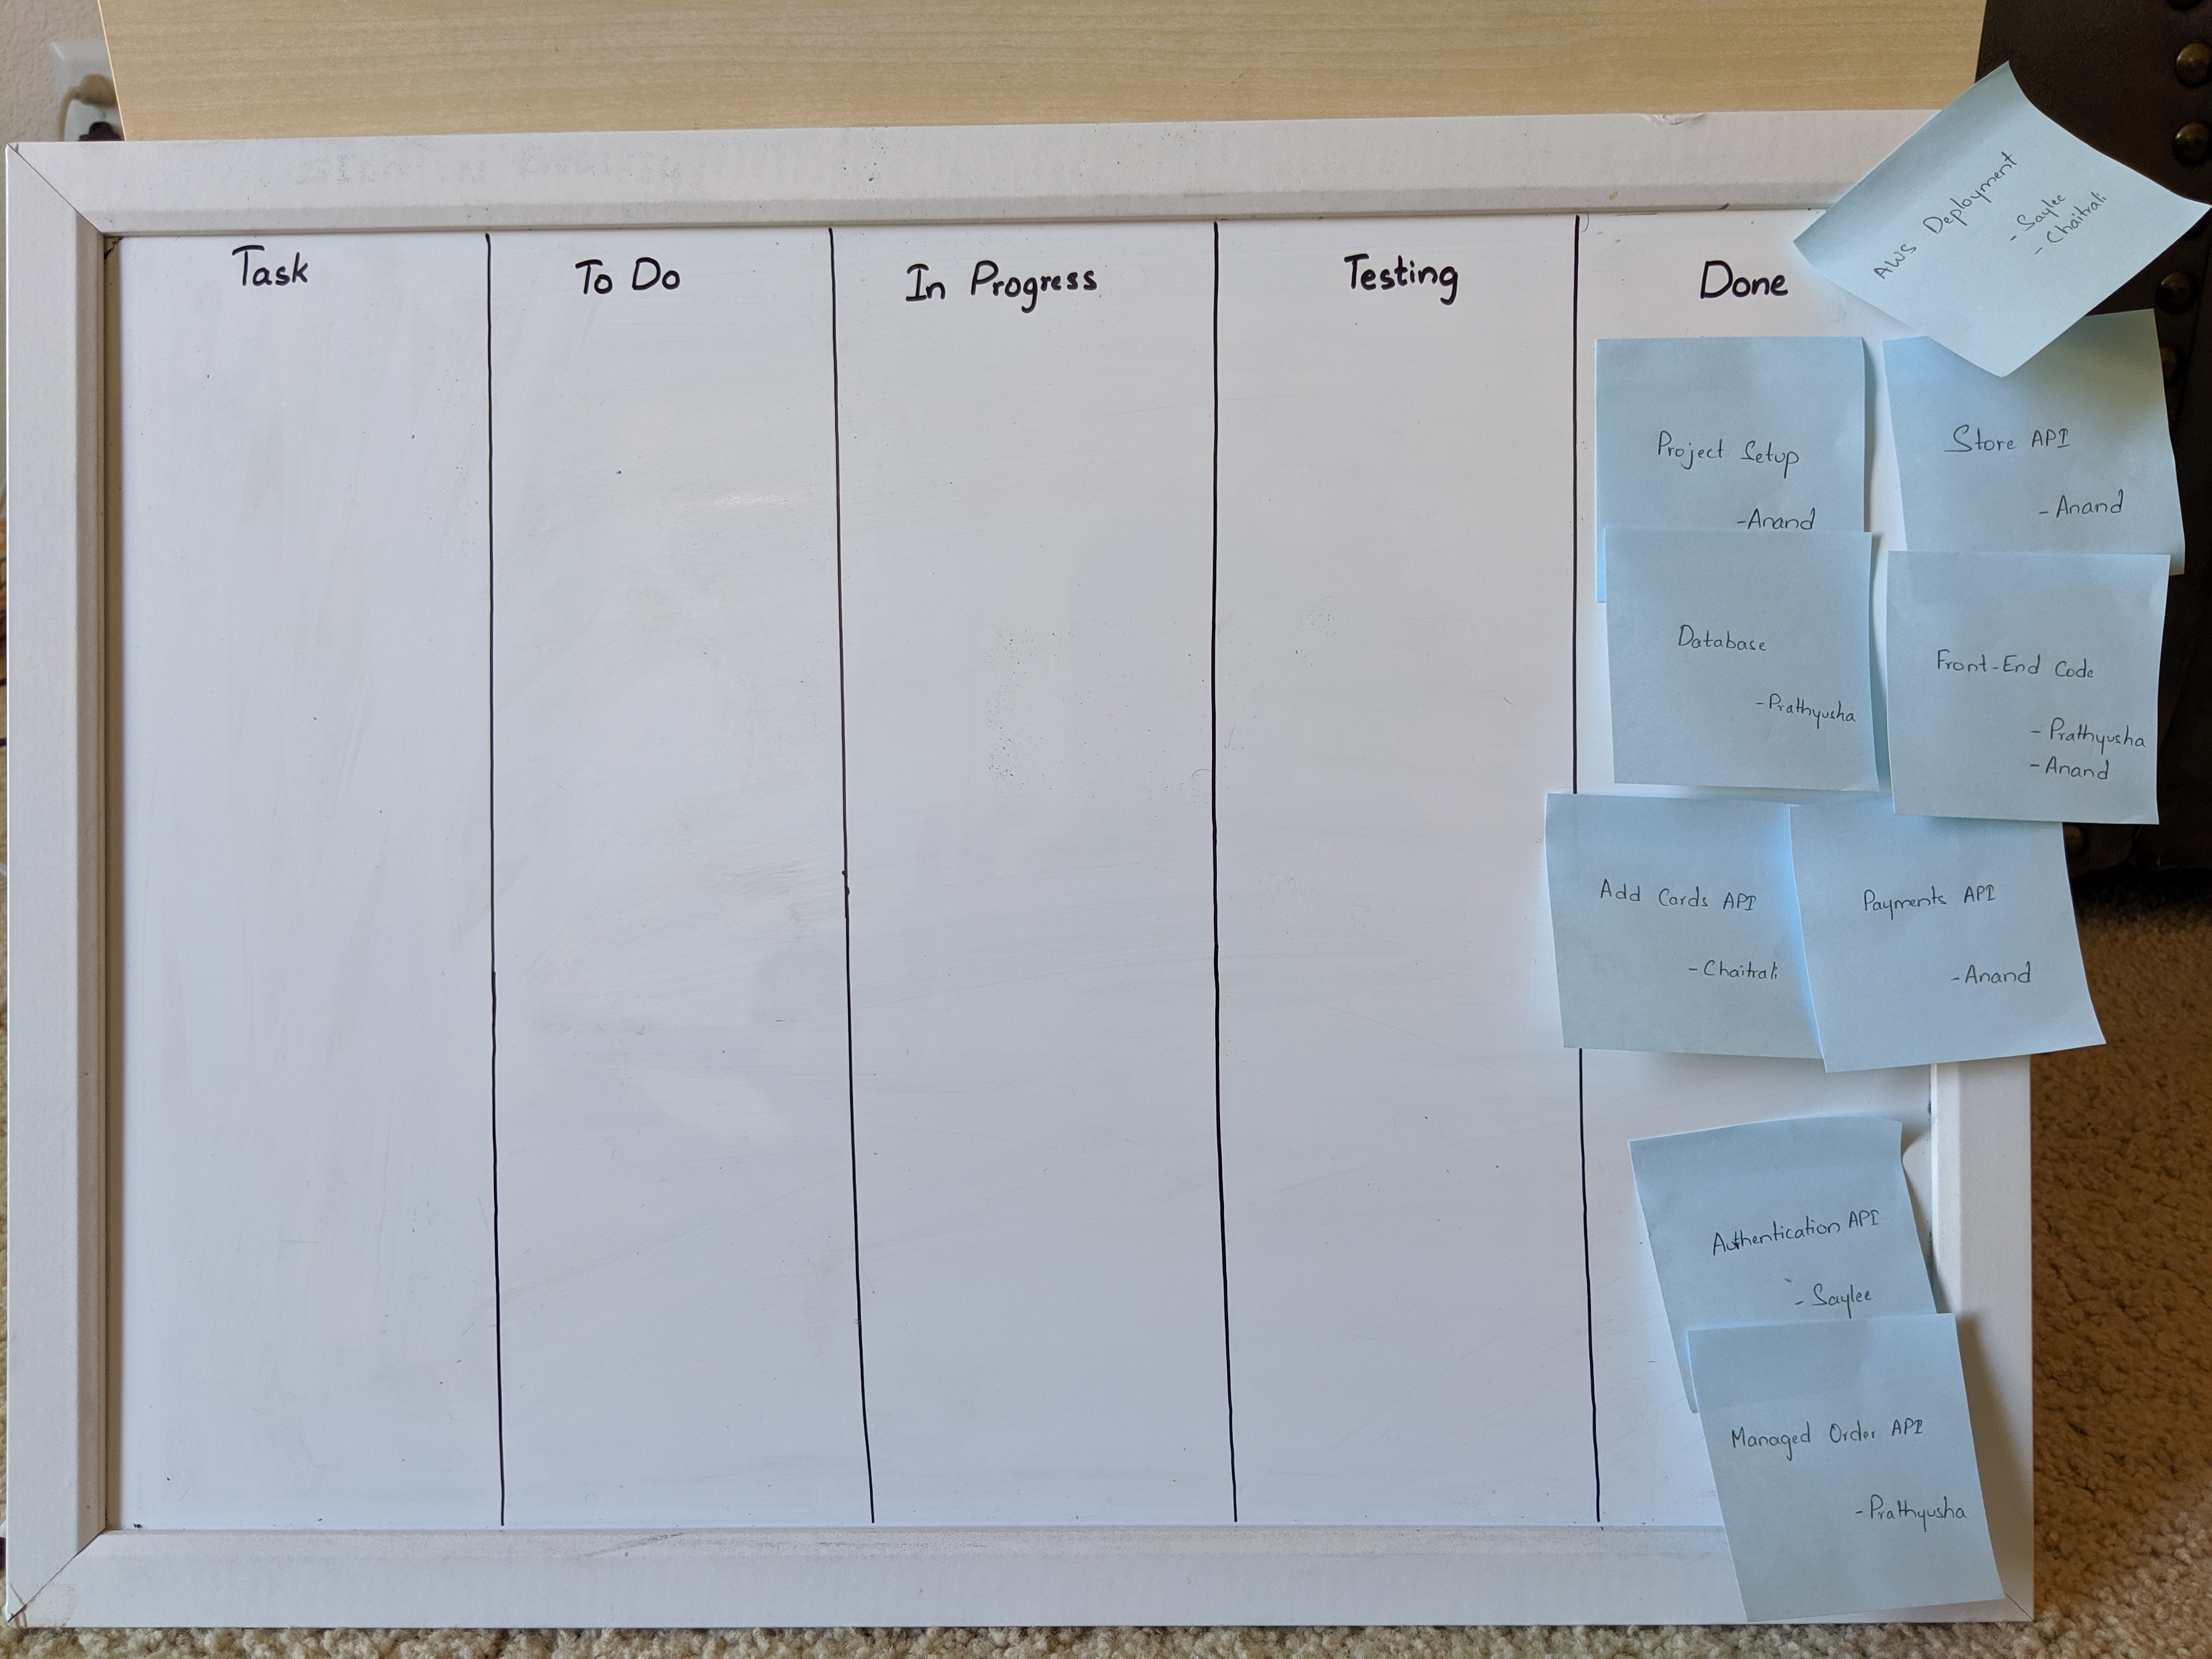 Task
To Do
In Progress
Testing
Done
AWS Deployment
- Saylee
- Chaitrali
Project Setup
-Anand
Store API
- Anand
Database
-Prathyusha
Front-End Code
- Prathyusha
- Anand
Add Cards API
- Chaitrali
Payments API
- Anand
Authentication API
- Saylee
Managed Order API
-Prathyusha